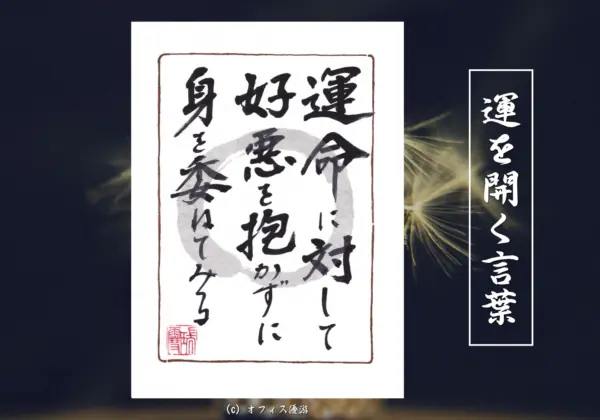 運命に対して
好悪を抱かずに
身を委ねてみる
運を開く言葉
(c) オフィス優游